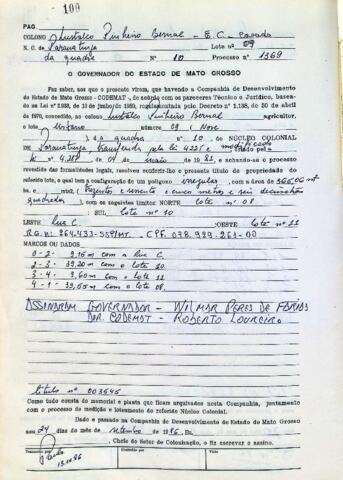 100
PAG.
COLONO Eustáleo Pinheiro Bernal - E.C. Casado
N. C. de Paranatinga Lote nº 09
da quadra Nº 10 Processo nº 1369
O GOVERNADOR DO ESTADO DE MATO GROSSO
Faz saber, aos que o presente virem, que havendo a Companhia de Desenvolvimento
do Estado de Mato Grosso - CODEMAT -, de acordo com os pareceres Técnico e Jurídico, basea-
do na Lei nº 2.938, de de Junho de 1969, regulamentada pelo Decreto nº 1.138, de 30 de abril
de 1970, concedido ao colono Eustáleo Pinheiro Bernal agricultor,
o lote Urbano número 09 | Nove
da quadra nº 10, do NÚCLEO COLONIAL
de Paranatinga, transferido pela lei 4225 e modificado pela
de 04 de maio de 1982, e achando-se o processo
revestido das formalidades legais, resolveu conferir-lhe o presente título de propriedade do
referido lote, o qual tem a configuração de um polígono irregular, com a área de 365,06 m²
metros e seis decímetros
quadrados), com os seguintes limites: NORTE lote nº 08
: SUL lote nº 10
LESTE Rua C. : OESTE lote nº 11
R.G. nº 264.433-SSP/MT. - CPF. 078.989.261-00
MARCOS OU DADOS
1 - 2 - 9,15 m com a Rua C.
2 - 3 - 39,20 m com o lote 10.
3 - 4 - 9,60 m com o lote 11
4 - 1 - 39,65 m com o lote 08.
ASSINARAM GOVERNADOR - WILMAR PERES DE FARIAS
DIR. CODEMAT - ROBERTO LOUREIRO
título nº 003645
Como tudo consta do memorial e planta que ficam arquivados nesta Companhia, juntamente
com o processo de medição e loteamento do referido Núcleo Colonial.
Dado e passado na Companhia de Desenvolvimento do Estado de Mato Grosso
aos 24 dias do mês de setembro de 1986. Eu,
, Chefe do Setor de Colonização, o fiz escrever e assino.
Transcrito por
Conferido por
Visto
13.10.86